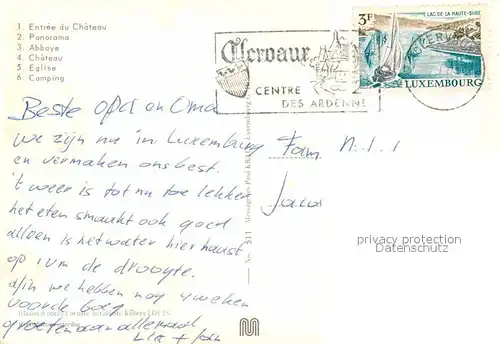 1. Entrée du Château
2. Panorama
3. Abbaye
4. Château
5. Eglise
6. Camping
Clervaux
CENTRE
DES ARDENNE
3F
LAC DE LA HAUTE-SÛRE
LUXEMBOURG
Beste opa en Oma
we zijn nu in Luxemburg
en vermaken ons best.
't weer is tot nu toe lekker
het eten smaakt ook goed
alleen is het water hier
op ivm de droogte.
we hebben nog 4 weken
voor de boeg
groeten aan allemaal
Fam
No. 511
Messageries Paul
Luxembourg
privacy protection
Datenschutz